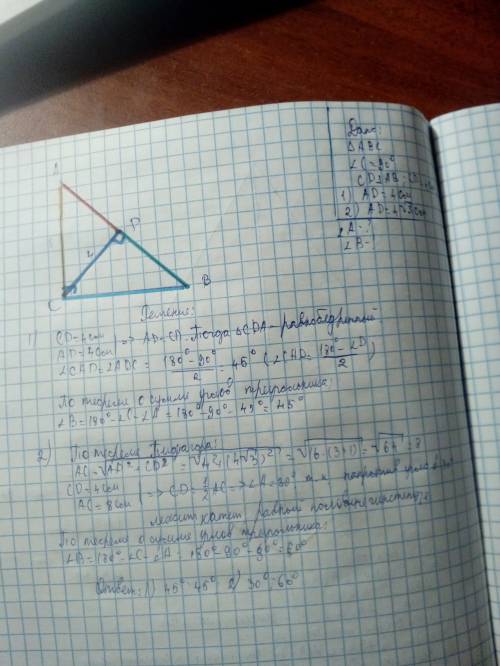 Дано:
△ABC
∠C=90°
CD⊥AB
1) AD=4см
2) AD=4√3см
∠A-?
∠B-?
A
D
4
C
B
Решение:
1) CD=4см
AD=4см
=> AD=CD. Тогда △CDA - равнобедренный
∠CAD=∠ADC = 180°-90° / 2 = 45° (∠CAD= 180°-∠D / 2)
По теореме о сумме углов треугольника:
∠B=180°-∠C-∠A=180°-90°-45°=45°
2) По теореме Пифагора:
AC=√AD²+CD² = √4²+(4√3)² = √16·(3+1) = √64 = 8
CD=4см
AC=8см
=> CD=1/2 AC => ∠A=30° т.к. напротив угла в 30°
лежит катет равный половине гипотенузы
По теореме о сумме углов треугольника:
∠B=180°-∠C-∠A=180°-90°-90°=60°
Ответ: 1) 45° 45° 2) 30° 60°